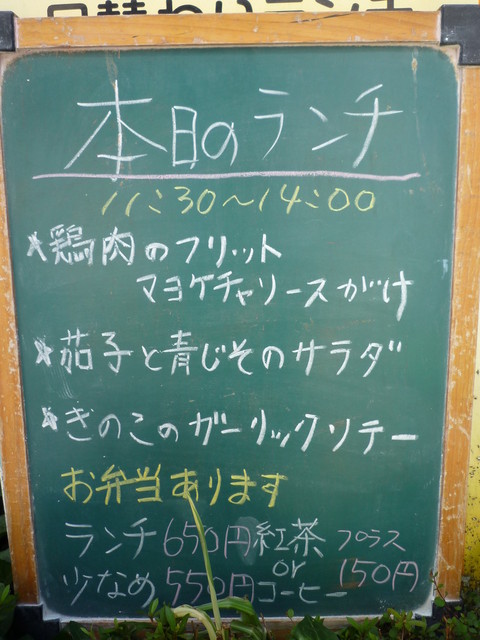 日替わりランチ
本日のランチ
11:30〜14:00
★鶏肉のフリット
マヨケチャソースがけ
★茄子と青じそのサラダ
★きのこのガーリックソテー
お弁当あります
ランチ650円 紅茶 プラス
少なめ550円 or コーヒー 150円